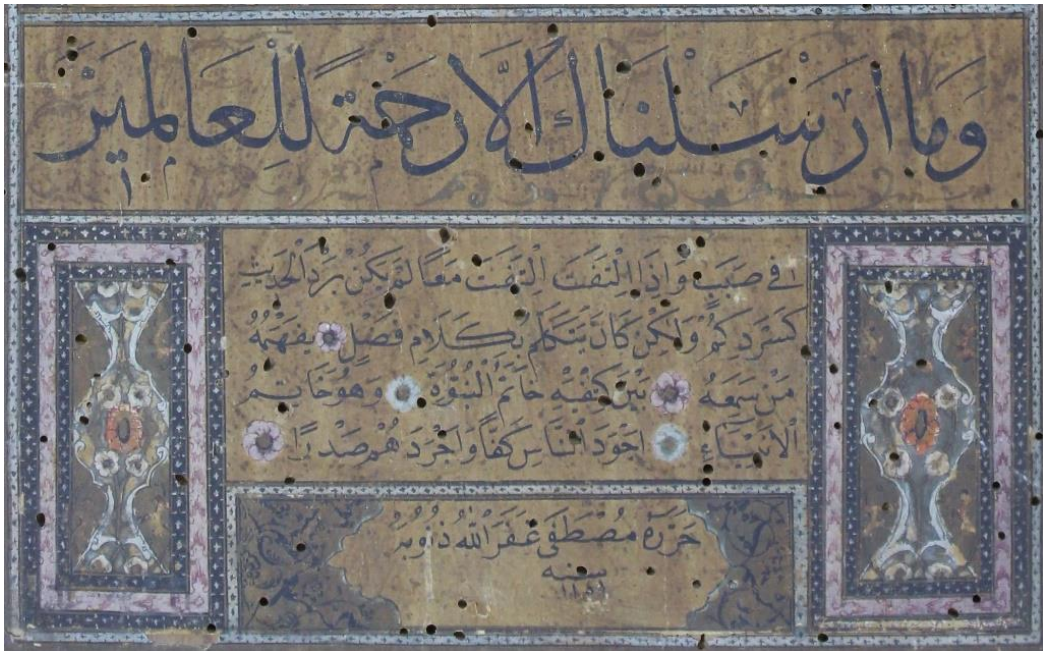 وَمَا أَرْسَلْنَاكَ إِلَّا رَحْمَةً لِلْعَالَمِينَ
في صَبَبٍ وَاِذَا الْتَفَتَ الْتَفَتَ مَعًا لَمْ يَكُنْ يَرُدُّ الْحَدِيثَ
كَسَرْدِكُمْ وَلٰكِنْ كَانَ يَتَكَلَّمُ بِكَلَامٍ فَصْلٍ يَفْهَمُهُ
مَنْ سَمِعَهُ بَيْنَ كَتِفَيْهِ خَاتَمُ النُّبُوَّةِ وَهُوَ خَاتِمُ
الْاَنْبِيَاءِ اَجْوَدَ النَّاسِ كَفًّا وَاَجْرَدَ هُمْ صَدْرًا
حَرَّرَهُ مُصْطَفَى غَفَرَ اللهُ ذُنُوبَهُ
سنه